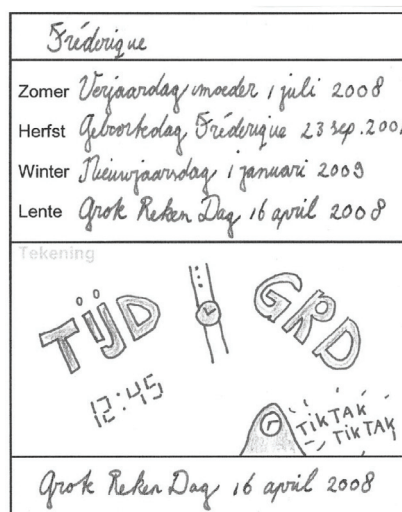 Fréderique
Zomer Verjaardag moeder 1 juli 2008
Herfst Geboortedag Fréderique 23 sep. 200
Winter Nieuwjaarsdag 1 januari 2009
Lente Grote Reken Dag 16 april 2008
Tekening
TIJD GRD
12:45
TIKTAK
TIKTAK
Grote Reken Dag 16 april 2008